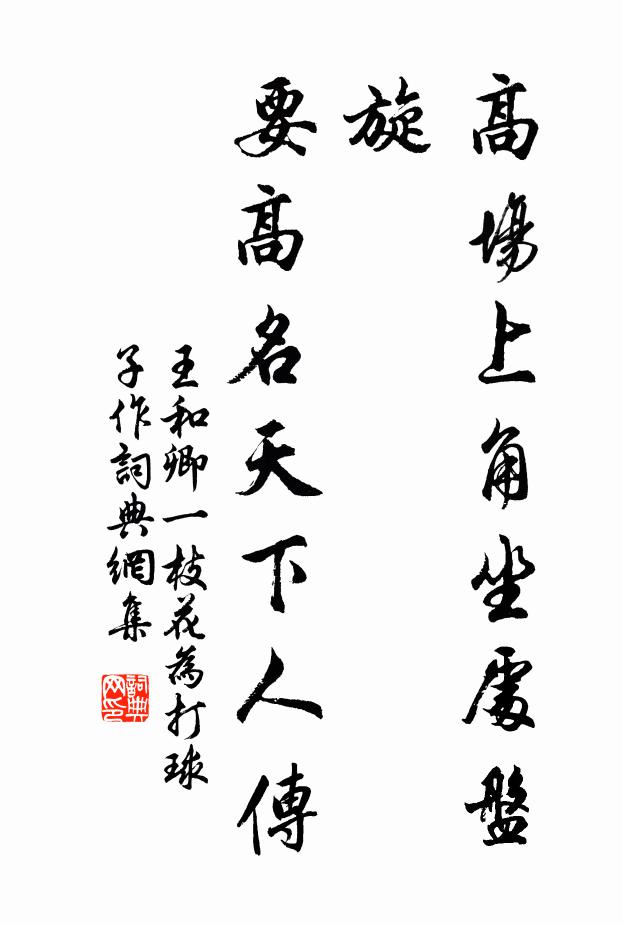 高場上角坐處盤
旋
要高名天下人傳
王和卿一枝花為打球
子作詞典網集
詞典
网印